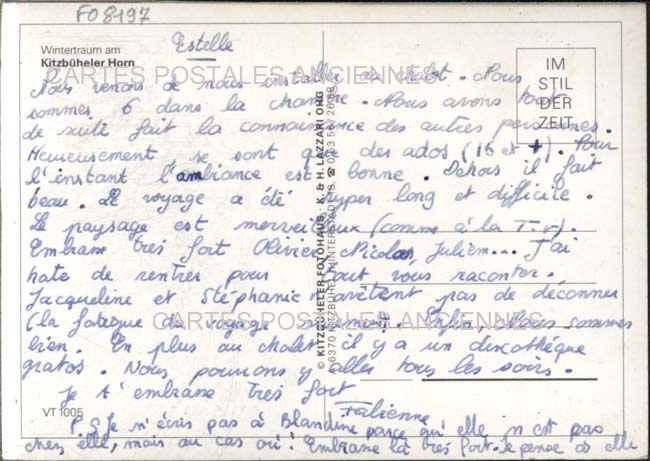 FO8197
Wintertraum am
Kitzbüheler Horn
Estelle
IM
STIL
DER
ZEIT
CARTES POSTALES ANCIENNES
Nous venons de nous installer au chalet. Nous
sommes 6 dans la chambre. Nous avons tout
de suite fait la connaissance des autres personnes.
Heureusement se sont que des ados (16 et +). Pour
l'instant l'ambiance est bonne. Dehors il fait
beau. Le voyage a été hyper long et difficile.
Le paysage est merveilleux (comme à la T.V).
Embrasse très fort Olivier, Nicolas, Julien... J'ai
hate de rentrer pour tout vous raconter.
Jacqueline et Stéphanie arrêtent pas de déconner
(la fatigue du voyage surement). Enfin, nous sommes
CARTES POSTALES ANCIENNES
bien. En plus au chalet il y a un discothèque
gratos. Nous pourrons y aller tous les soirs.
Je t'embrasse très fort
Fabienne
VT 1005
P.S Je n'écris pas à Blandine parce qu'elle n est pas
chez elle, mais au cas où! Embrasse là très fort. Je pense à elle
© KITZBÜHELER FOTOHAUS, K. & H. LAZZARI OHG
A 6370 KITZBÜHEL, HINTERSTADT